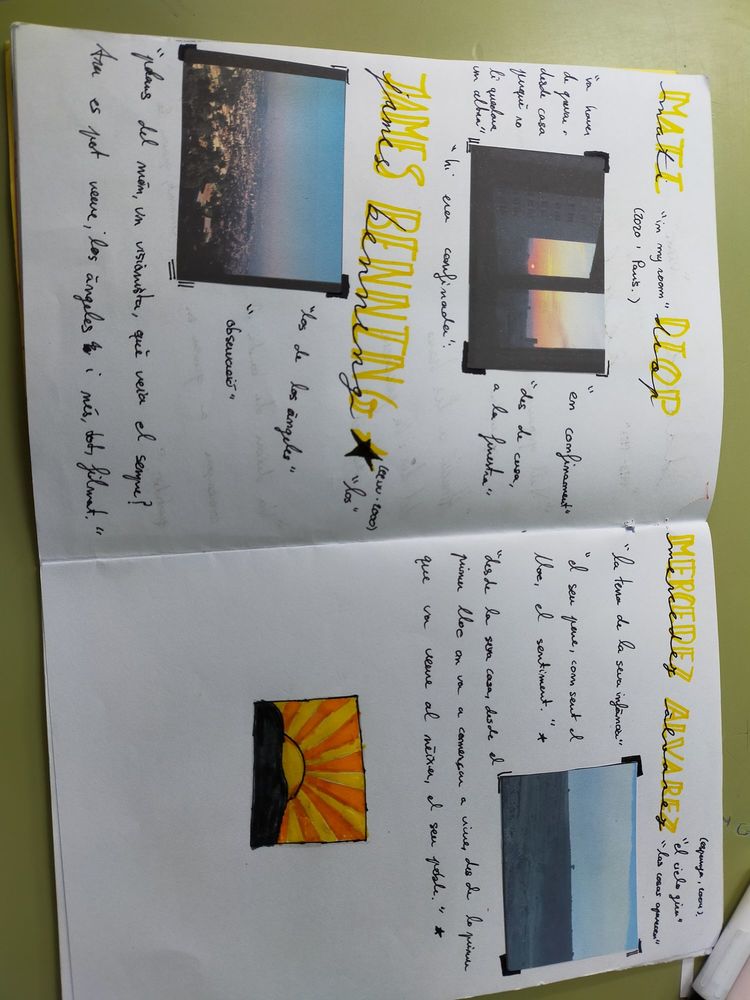 MATI DIOP
mati diop
"in my room"
(2020, París.)
"va haver
de gravar
desde casa
perquè no
li quedava
un altra"
"hi era confinada".
"en confinament"
"des de casa,
a la finestra"
JAMES BENNING
james benning
"los"
"los de los àngeles"
observació"
"plans del món, un visionista, què veia el sempre?
Ara es pot veure, los àngeles i més, tot, filmat."
MERCEDEZ ALVAREZ
mercedez alvarez
"el cielo gira"
"las cosas aparecen"
"la terra de la seva infància"
"el seu gene, com sent el
lloc, el sentiment." *
"desde la seva casa, desde el
primer lloc on va a començar a viure, des de lo primer
que va veure al néixer, el seu poble." *